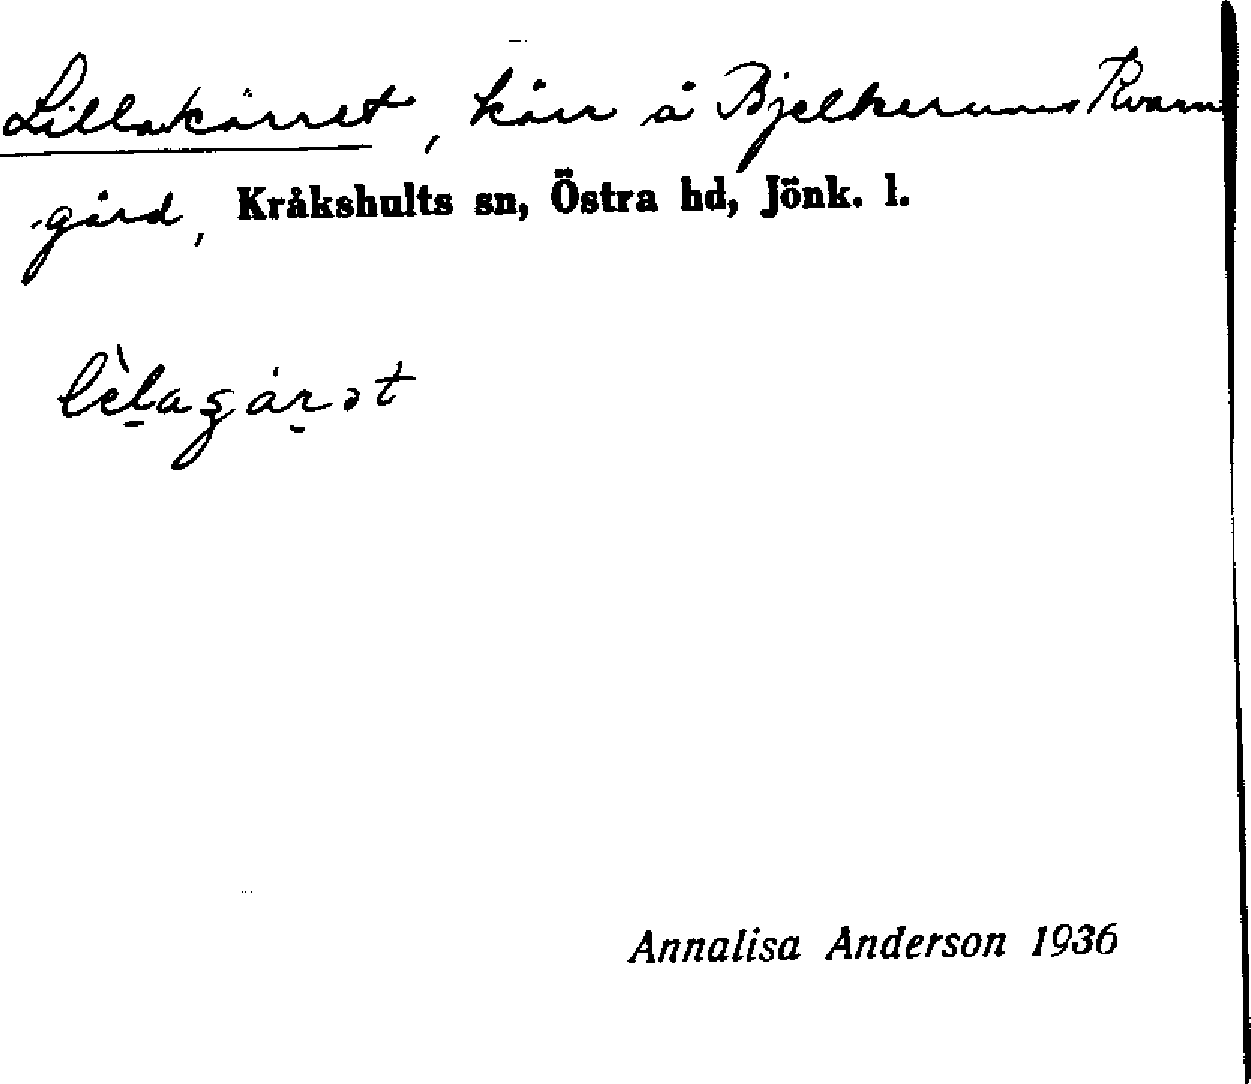 Lillakärret, kärr å Bjelkerums Kvarn
gård, Kråkshults sn, Östra hd, Jönk. l.
Annalisa Anderson 1936